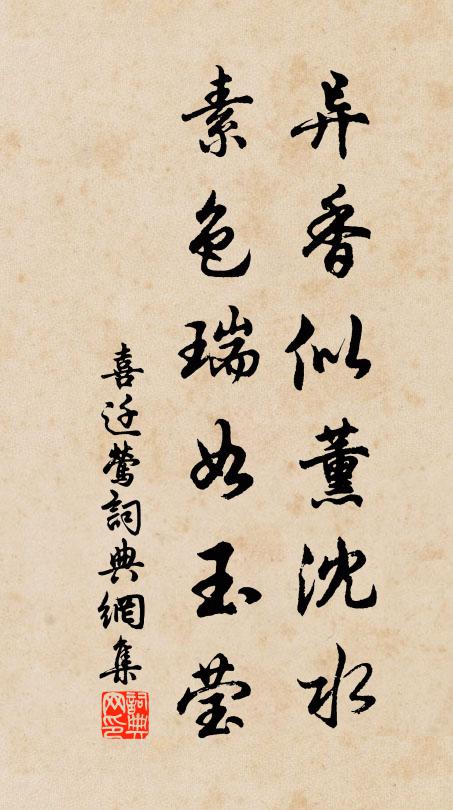 异香似薰沈水
素色瑞如玉莹
喜迁莺詞典網集
詞典网印